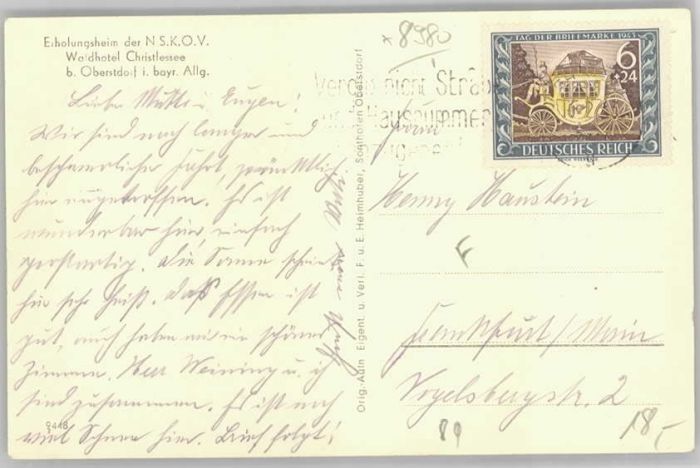 Erholungsheim der N.S.K.O.V.
Waldhotel Christlessee
b. Oberstdorf i. bayr. Allg.
Liebe Mutti u. Eugen!
Wir sind nach langer und
beschwerlicher Fahrt, pünktlich
hier eingetroffen. Es ist
wunderbar hier, einfach
großartig. Die Sonne scheint
hier sehr heiß. Das Essen ist
gut, auch haben wir ein schönes
Zimmer. Herr Weining u. ich
sind zusammen. Es ist noch
viel Schnee hier. Brief folgt!
9448
Orig.-Aufn. Eigent. u. Verl. F. u. E. Heimhuber, Sonthofen-Oberstdorf
8980
Vergiß nicht Straße
und Hausnummer
TAG DER BRIEFMARKE 1943
6
+24
DEUTSCHES REICH
Frau
Henny Haustein
F
Frankfurt/Main
Vogelsbergstr. 2
89
18,-